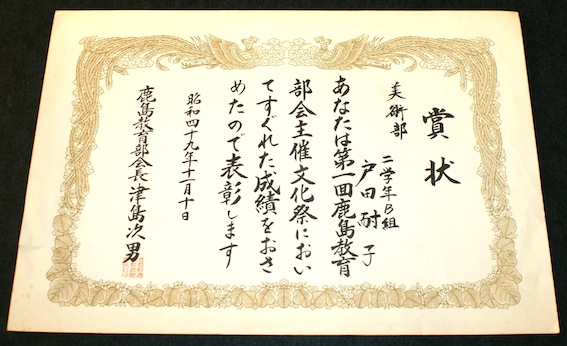 賞状
美術部
二学年B組
戸田耐子
あなたは第一回鹿島教育
部会主催文化祭におい
てすぐれた成績をおさ
めたので表彰します
昭和四十九年十一月十日
鹿島教育部会長津島次男